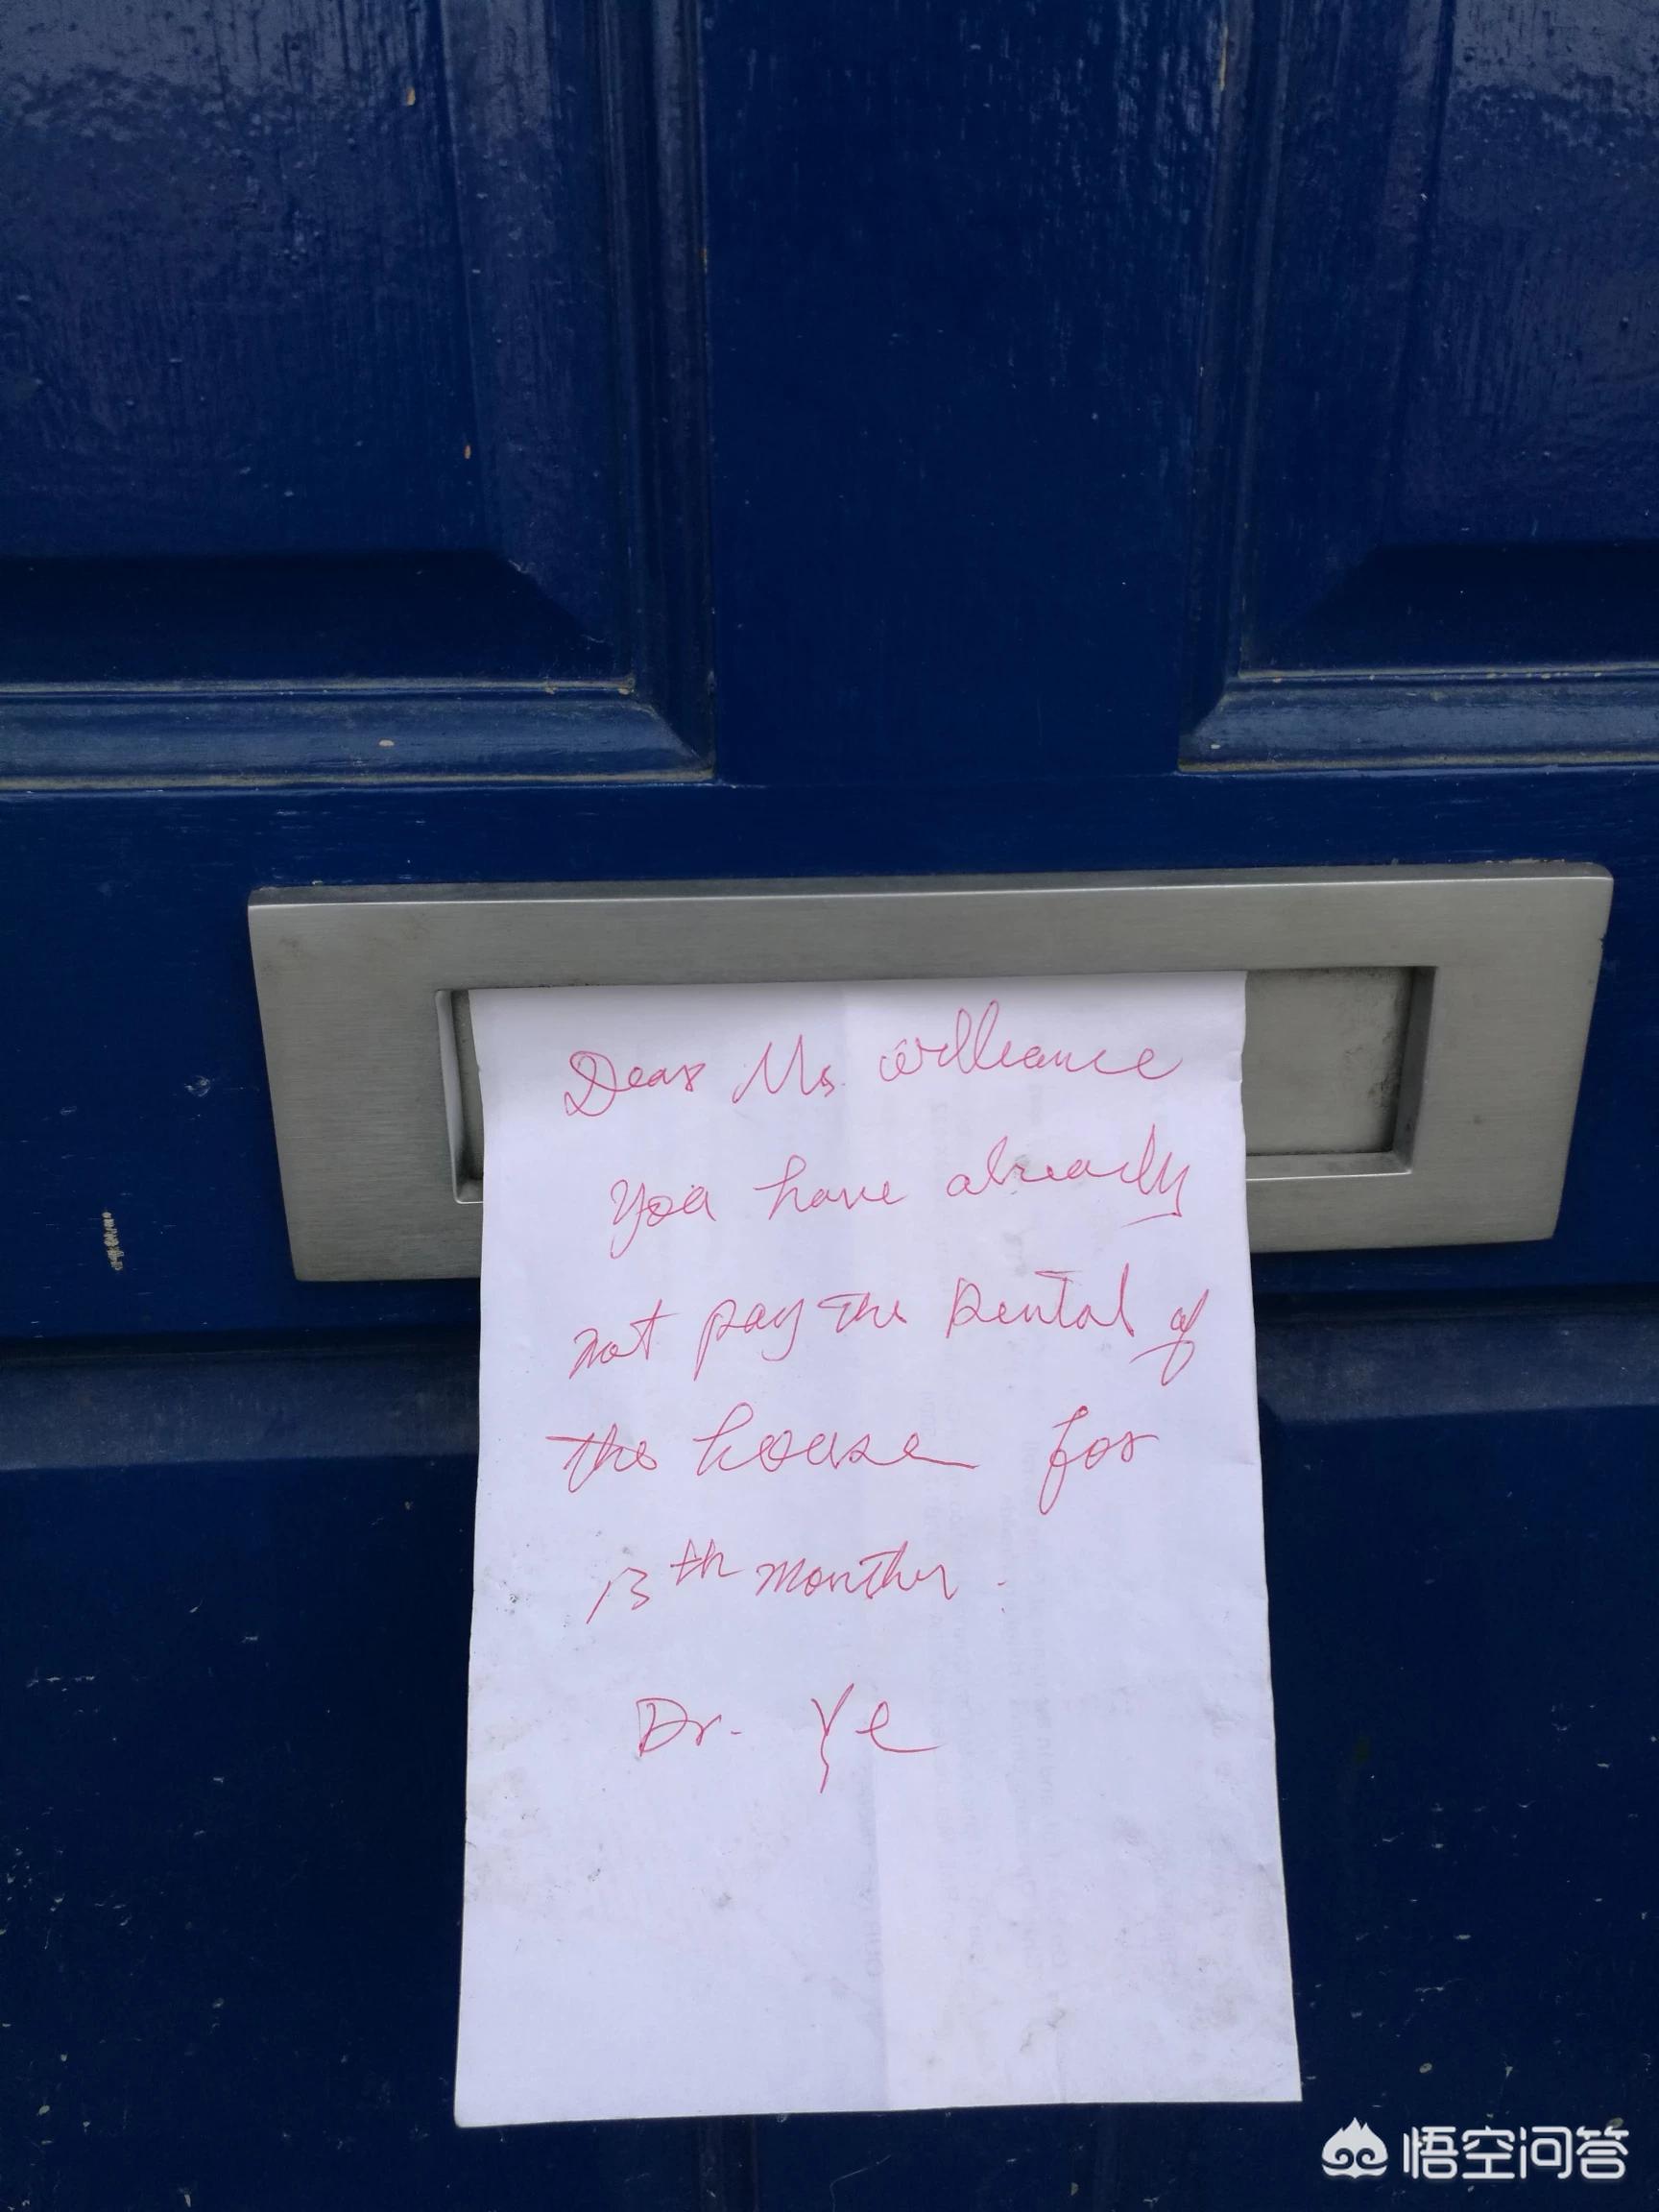 Dear Ms. Williance
You have already
not pay the Rental of
the house for
13th months.
Dr. Ye
悟空问答